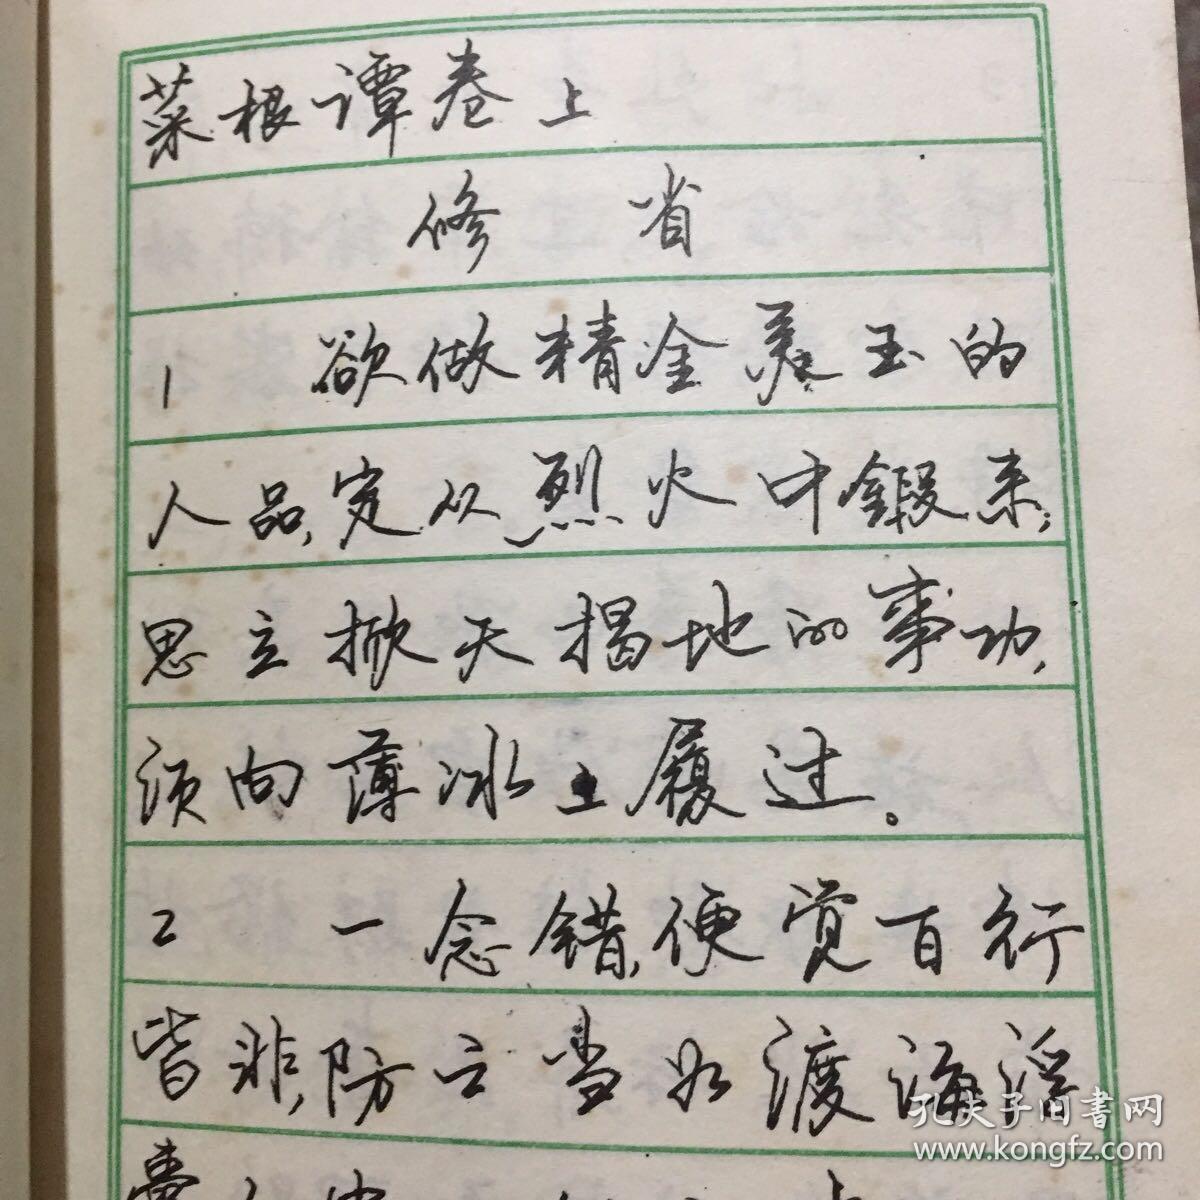 菜根谭卷上
修省
1 欲做精金美玉的
人品,定从烈火中锻来;
思立掀天揭地的事功,
须向薄冰上履过。
2 一念错,便觉百行
皆非,防之当如渡海浮
孔夫子旧书网
www.kongfz.com